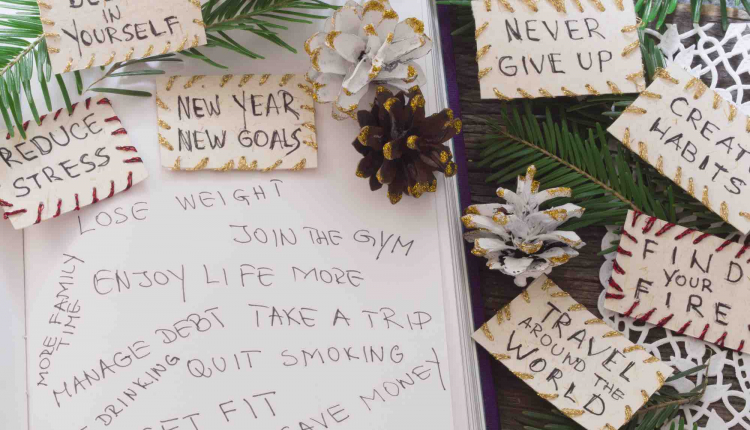 IN
YOURSELF
NEW YEAR
NEW GOALS
REDUCE
STRESS
NEVER
GIVE UP
HABITS
FIND
YOUR
FIRE
TRAVEL
AROUND THE
WORLD
LOSE WEIGHT
JOIN THE GYM
ENJOY LIFE MORE
MORE FAMILY
TIME
MANAGE DEBT
TAKE A TRIP
DRINKING
QUIT SMOKING
GET FIT
SAVE MONEY